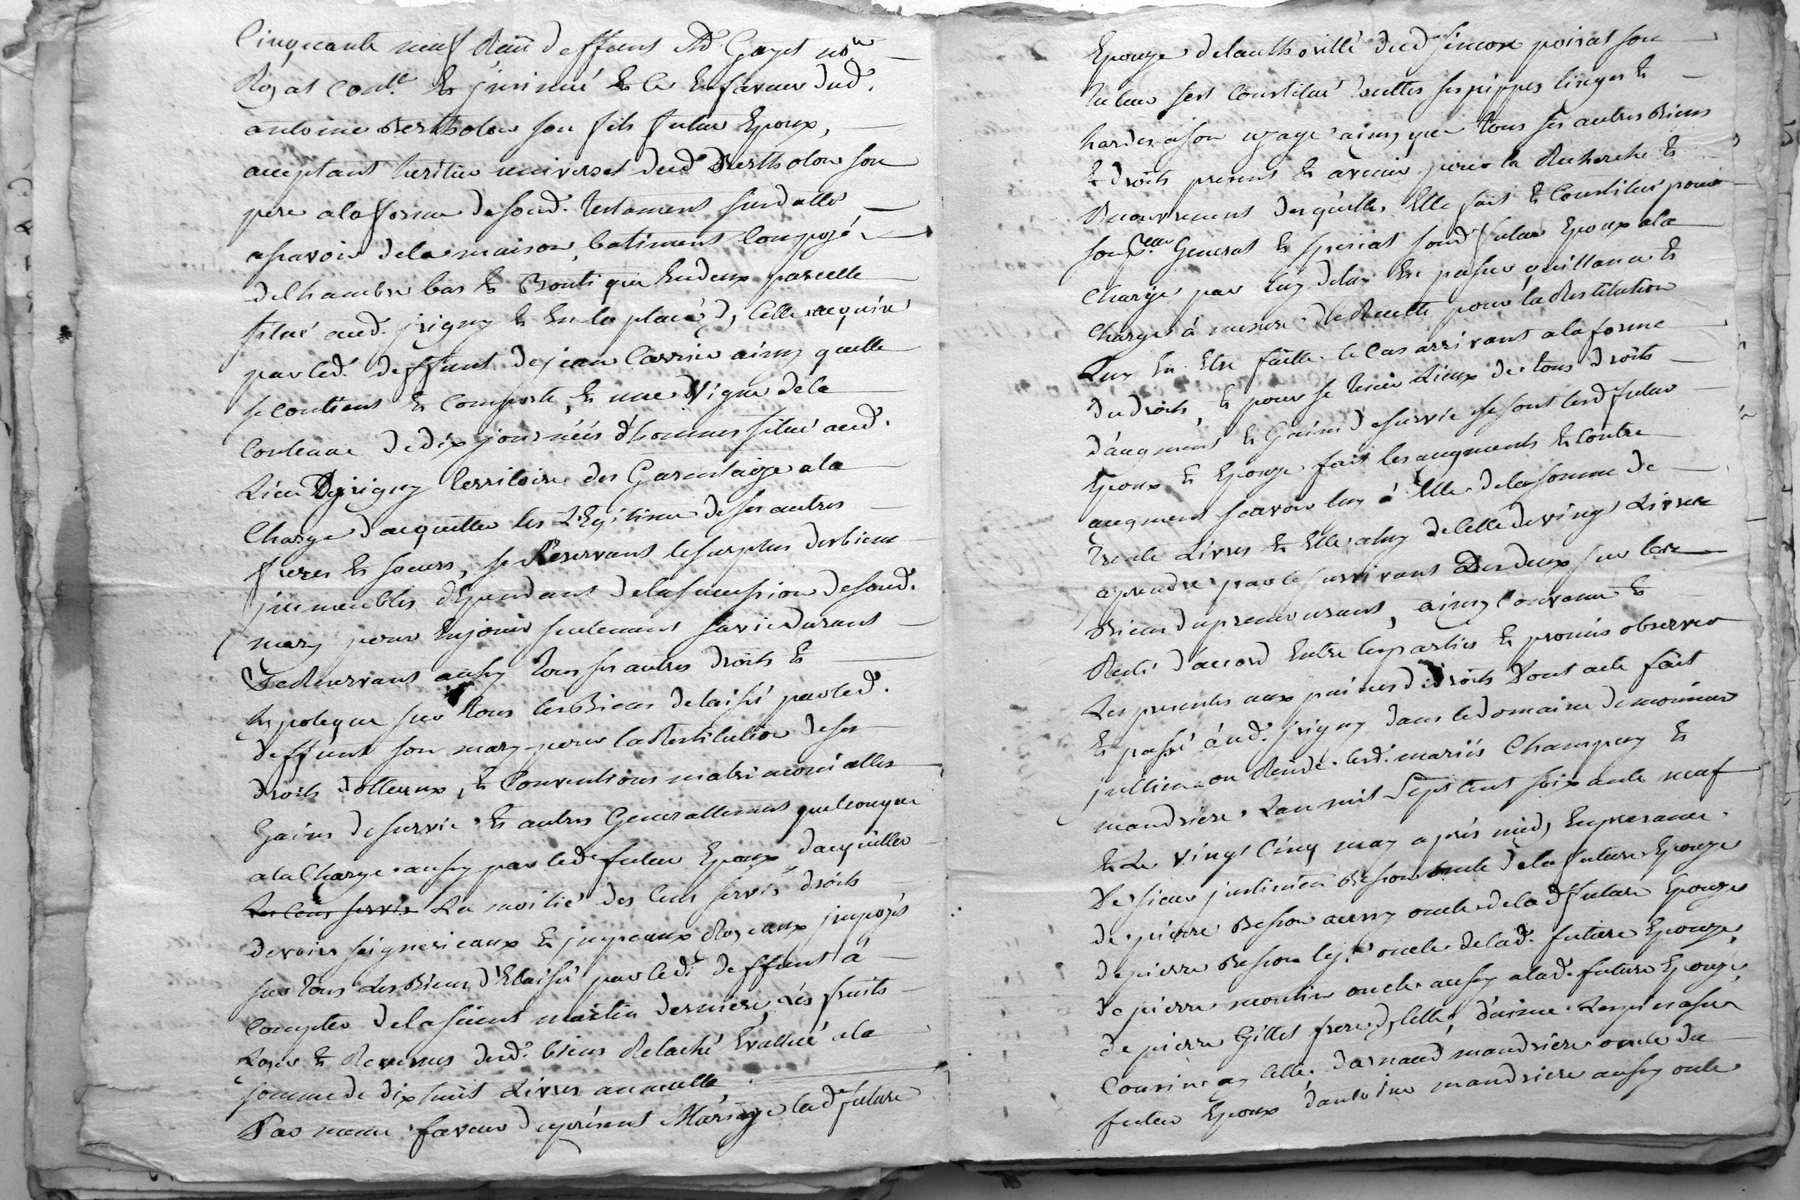 Cinquante neuf deffunt Me Gayet nore
Royal et ce en faveur dud.
antoine Bertholon son fils futur Epoux,
acceptant heritier universel dud Bertholon son
pere a la forme de sond. testament susdatté
a scavoir de la maison, batiment composé
de Chambre bas et Boutique en deux parcelle
situé aud. jrigny et en la place dicelle acquise
par led. deffunt de jean Carrier ainsy quelle
se contient et comporte, et une Vigne de la
contenue de dix journées d'hommes situé aud.
Lieu Djrigny territoire des a la
Charge d'acquitter les Légitime de ses autres
freres et soeurs, se Réservant le surplus des biens
jmmeubles dépendant de la succession de sond.
mary pour en jouir seulement sa vie durant
Se Reservant aussy tous ses autres droits et
hypoteque sur tous les Biens delaissé par led.
deffunt son mary pour la Restitution de ses
droits dotteaux, et Conventions matrimonialles
Gains de survie et autres Generallement quelconque
a la Charge aussy par led. futur Epoux d'acquitter
Les Cens servis La moitié des Cens servis droits
devoirs seigneuriaux et jmpeaux Royaux jmposés
sur tous les Biens délaissé par led. deffunt à
compter de la saint martin derniere, Les fruits
et Revenus desd. biens Relaché Evallué a la
somme de dix huit Livres annuelle
Par meme faveur du présent Mariage lad. future
Epouze de l'authorité dud. simon poirat son
tuteur sest Constitué toutes ses nippes linges et
hardes a son uzage ainsy que tous ses autres Biens
et droits presents et avenir pour la Recherche et
Recouvrement desquelles Elle fait et Constitué pour
son Pcur General et special sond. futur Epoux a la
Charge par luy den passer quittance et
Charge à mesure de Recette pour la Restitution
Luy En Etre faitte le cas arrivant a la forme
du droits, et pour se tenir Lieux de tous droits
d'augment et Gains de survie se sont lesd futur
Epoux et Epouze fait les augments et contre
augment scavoir luy à Elle de la somme de
trente Livres et Elle a luy de celle de vingt Livres
a prendre par le survivant Des deux sur les
Biens du premourant, ainsy convenu et
Resté d'accord Entre les parties et promis observer
Les presentes aux peines de droits Dont acte fait
et passé à ud. jrigny dans le domaine de monsieur
jullien ou Reside lesd. mariés Champuy et
mandriere Lan mil Sept Cent soixante neuf
et Le vingt Cinq may après midy En presence
De sieur justinien Besson oncle de la future Epouze
de pierre Besson aussy oncle de lad future Epouze
de pierre Besson le je oncle de lad. future Epouze,
de pierre moulin oncle aussy a lad. future Epouze,
de pierre Gillet frere dicelle, d'aimé Lespinasse
Cousin ay celle, d'arnaud mandriere oncle du
futur Epoux d'antoine mandriere aussy oncle